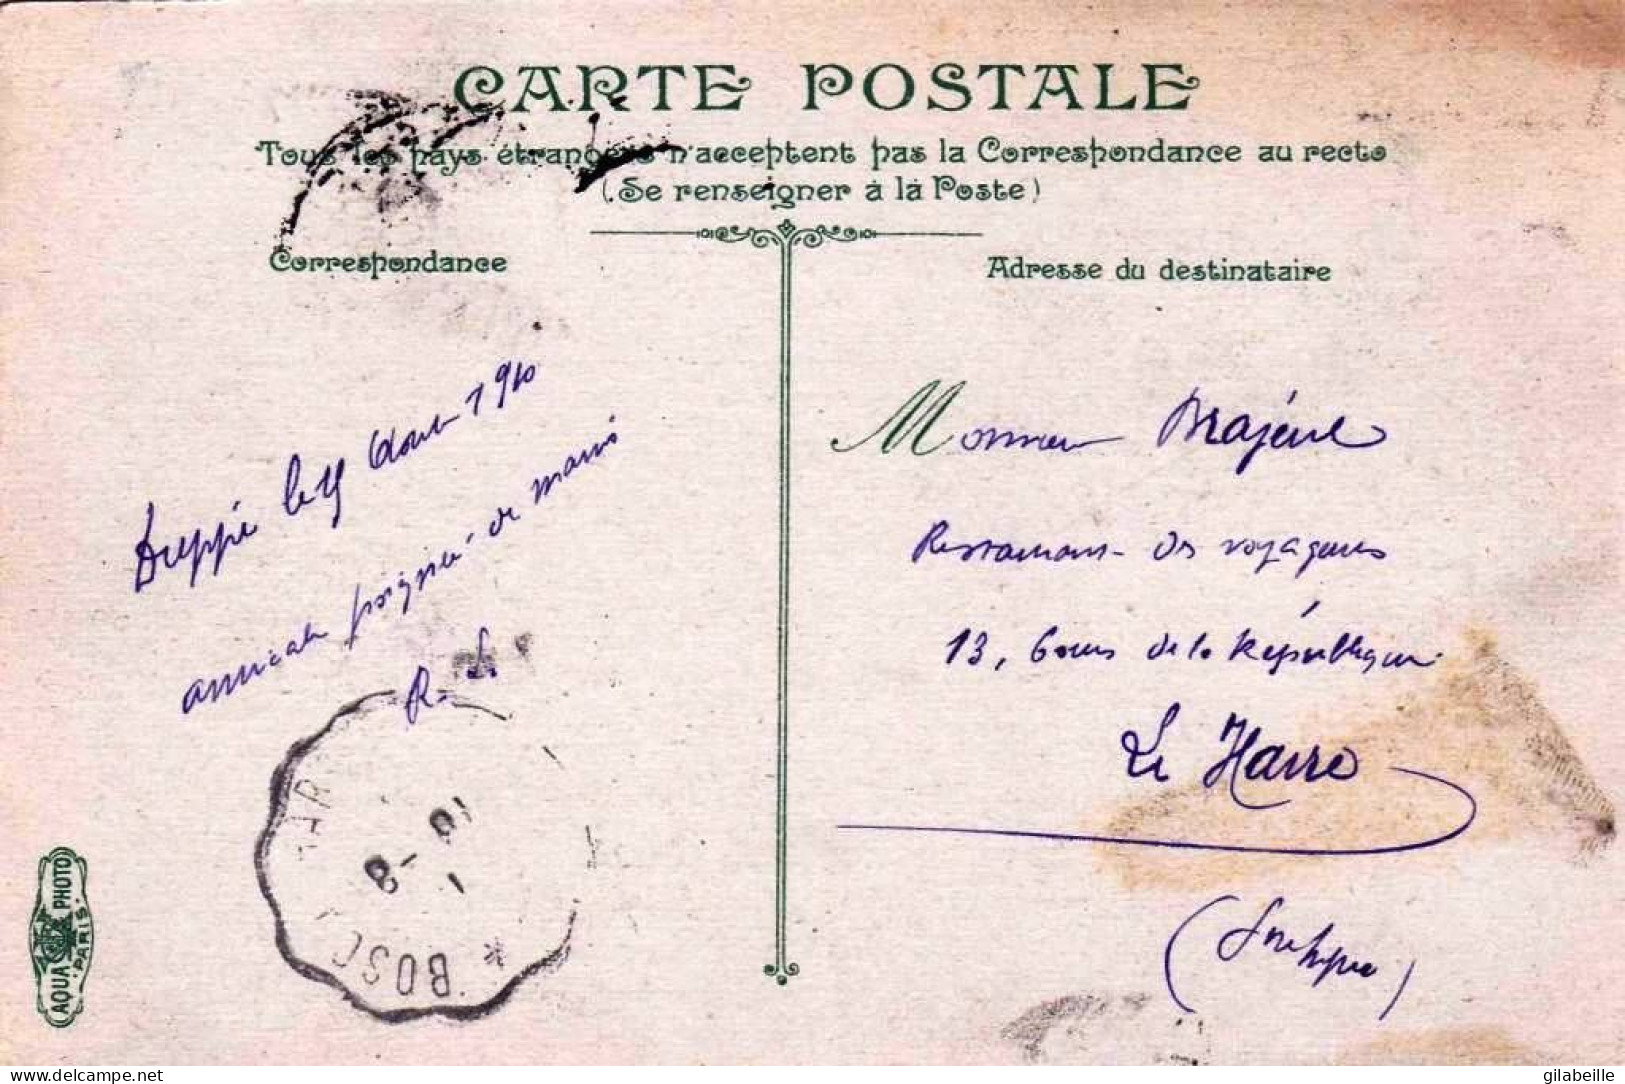 CARTE POSTALE
Tous les pays étrangers n'acceptent pas la Correspondance au recto
(Se renseigner à la Poste)
Correspondance
Adresse du destinataire
Dieppe le Aout 1910
amicale poignée de mains
R. L.
Monsieur
Restaurant des voyageurs
13, Cours de la République
Le Havre
AQUA PHOTO
PARIS
* BOSC
1
8
10
delcampe.net
gilabeille